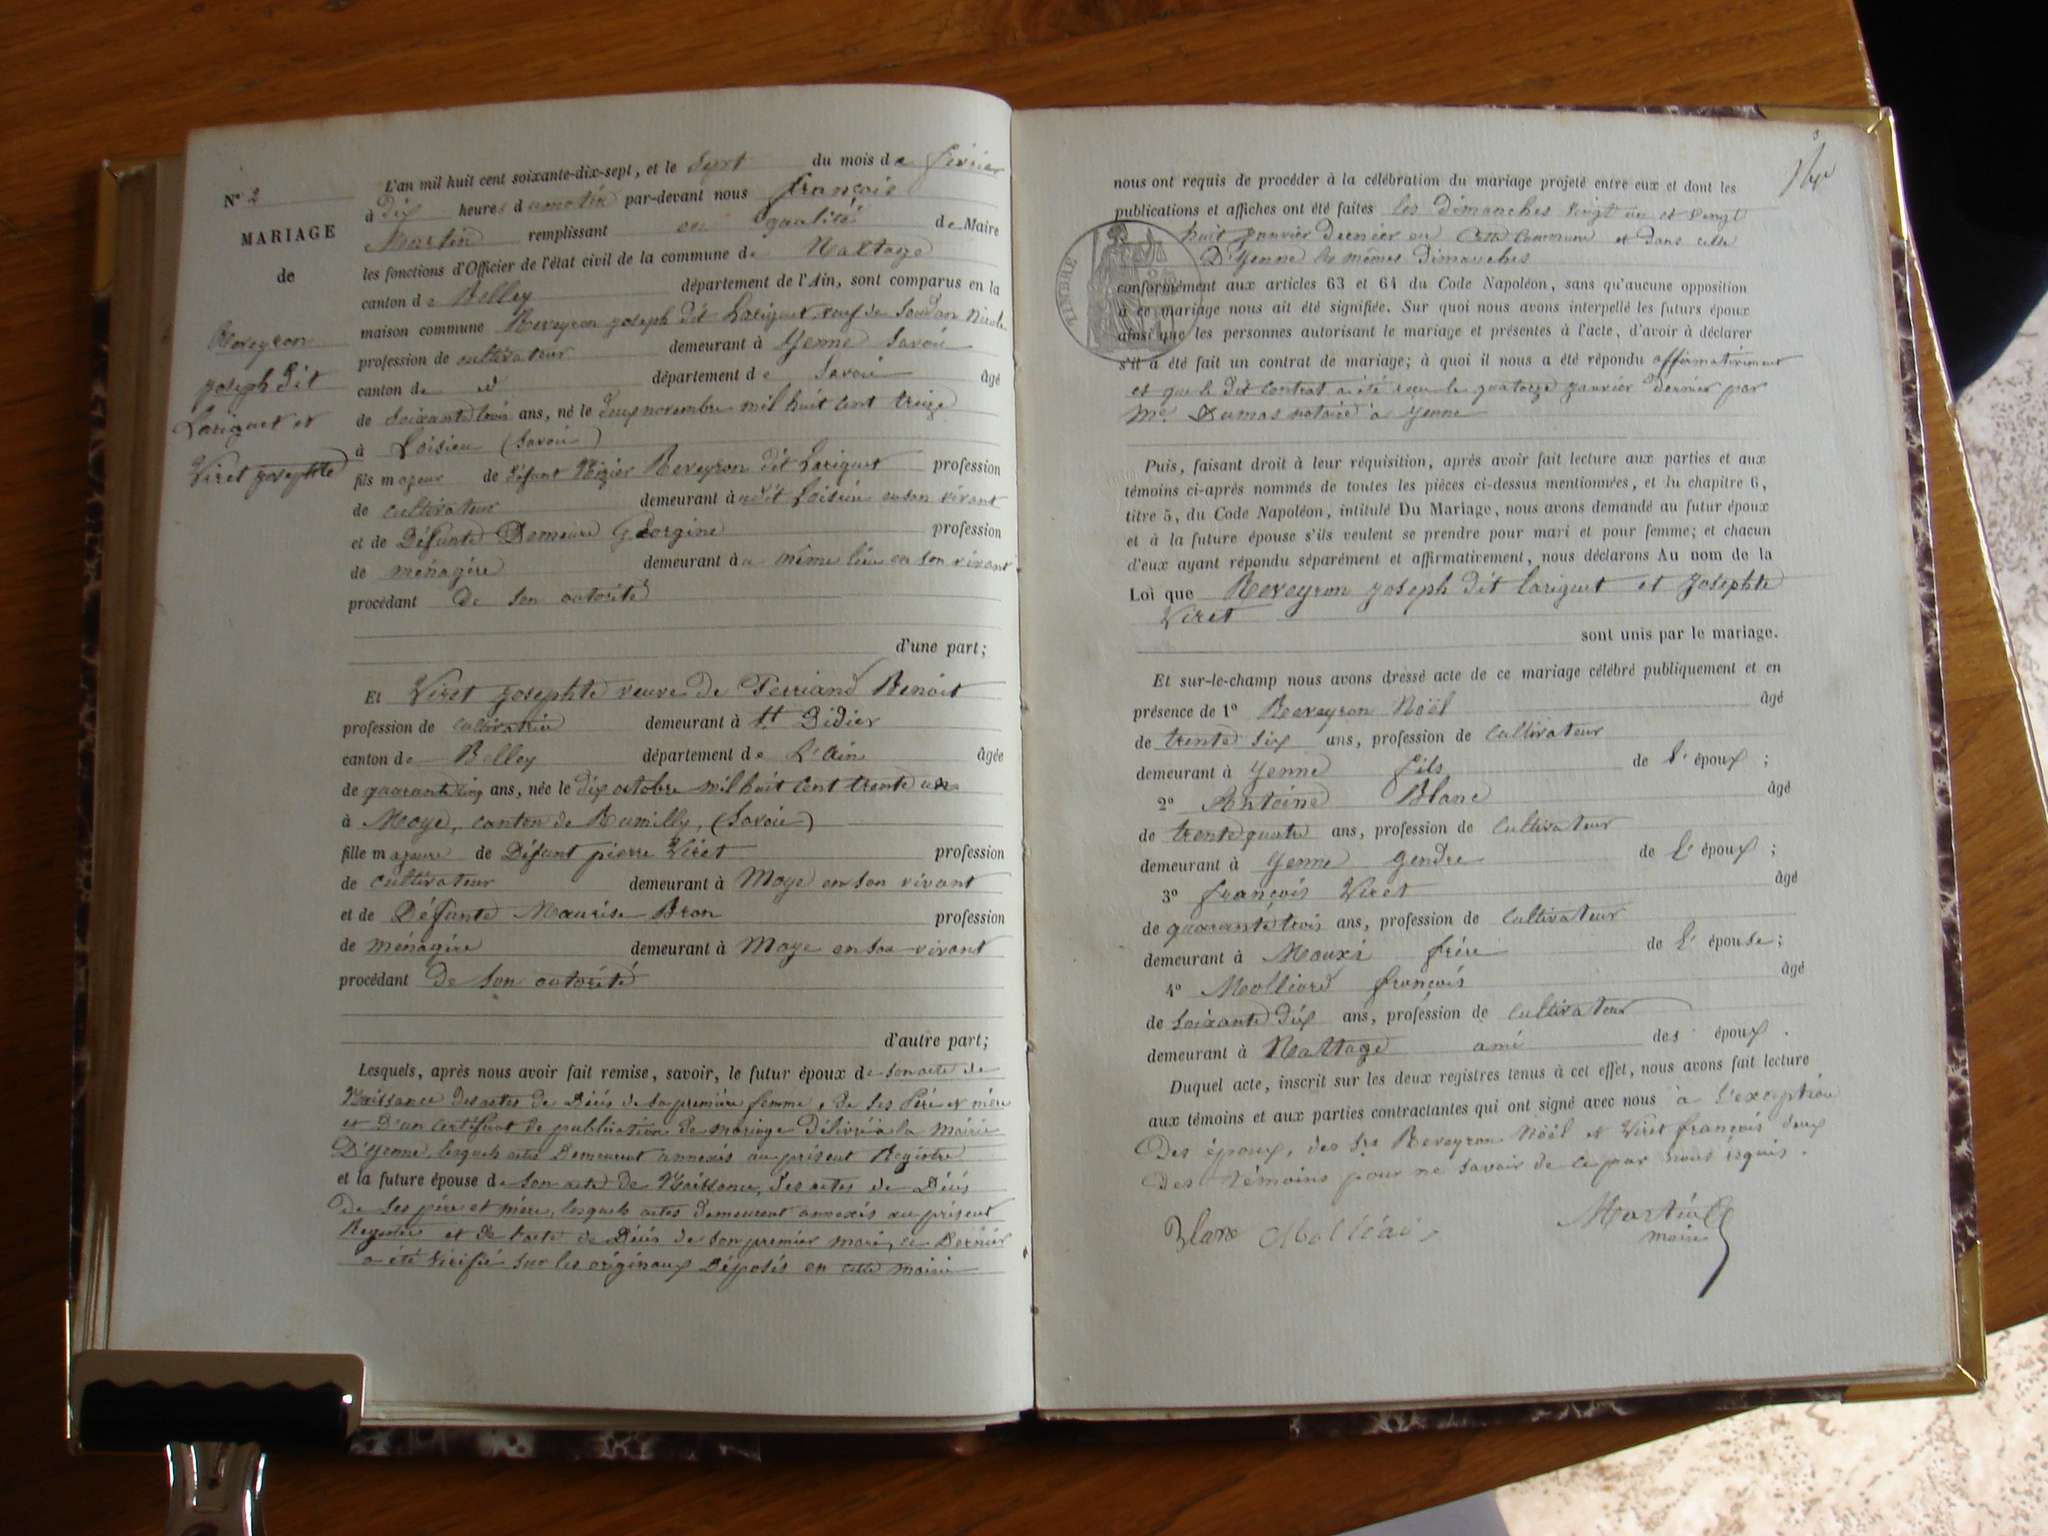 N° 2
MARIAGE
de
Reveyron
joseph dit
Lariguet et
Viret josephte
L'an mil huit cent soixante-dix-sept, et le sept du mois de février
à dix heures du matin par-devant nous françois
Martin remplissant en qualité de Maire
les fonctions d'Officier de l'état civil de la commune de Nattage
canton de Belley département de l'Ain, sont comparus en la
maison commune Reveyron joseph dit Lariguet, veuf de Nicole
profession de cultivateur demeurant à Yenne Savoie
canton de id département de Savoie âgé
de soixante trois ans, né le deux novembre mil huit cent treize
à Loisieu (Savoie)
fils majeur de défunt Nizier Reveyron dit Lariguet profession
de cultivateur demeurant à Loisieu en son vivant
et de Défunte Demeure Géorgine profession
de ménagère demeurant à même lieu en son vivant
procédant de son autorité
d'une part;
Et Viret josephte veuve de Ferrand Benoit
profession de cultivatrice demeurant à St Didier
canton de Belley département de L'Ain âgée
de quarante cinq ans, née le dix octobre mil huit cent trente un
à Moye, canton de Rumilly, (Savoie)
fille majeure de Défunt pierre Viret profession
de cultivateur demeurant à Moye en son vivant
et de Défunte Maurise Bron profession
de ménagère demeurant à Moye en son vivant
procédant de son autorité
d'autre part;
Lesquels, après nous avoir fait remise, savoir, le futur époux de son acte de
Naissance des actes de Décès de sa première femme, de ses Père et mère
et d'un certificat de publication de mariage délivré à la Mairie
D'Yenne, lesquels actes Demeurent annexés au présent Registre
et la future épouse de son acte de Naissance, des actes de Décès
de ses père et mère, lesquels actes demeurent annexés au présent
Registre et de l'acte de Décès de son premier mari, ce Dernier
a été vérifié sur les originaux Déposés en cette mairie
3
nous ont requis de procéder à la célébration du mariage projeté entre eux et dont les
publications et affiches ont été faites les dimanches vingt un et vingt
huit janvier dernier en Cette Commune et dans celle
D'Yenne les mêmes dimanches
TIMBRE
conformément aux articles 63 et 64 du Code Napoléon, sans qu'aucune opposition
à ce mariage nous ait été signifiée. Sur quoi nous avons interpellé les futurs époux
ainsi que les personnes autorisant le mariage et présentes à l'acte, d'avoir à déclarer
s'il a été fait un contrat de mariage; à quoi il nous a été répondu affirmativement
et que le dit contrat a été reçu le quatorze janvier dernier par
Me. Dumas notaire à Yenne
Puis, faisant droit à leur réquisition, après avoir fait lecture aux parties et aux
témoins ci-après nommés de toutes les pièces ci-dessus mentionnées, et du chapitre 6,
titre 5, du Code Napoléon, intitulé Du Mariage, nous avons demandé au futur époux
et à la future épouse s'ils veulent se prendre pour mari et pour femme; et chacun
d'eux ayant répondu séparément et affirmativement, nous déclarons Au nom de la
Loi que Reveyron joseph dit lariguet et Josephte
Viret
sont unis par le mariage.
Et sur-le-champ nous avons dressé acte de ce mariage célébré publiquement et en
présence de 1° Reveyron Noël âgé
de trente six ans, profession de cultivateur
demeurant à Yenne fils de l'époux ;
2° Antoine Blanc âgé
de trente quatre ans, profession de cultivateur
demeurant à Yenne gendre de L'époux ;
3° françois Viret âgé
de quarante trois ans, profession de cultivateur
demeurant à Mouxi frère de L'épouse;
4° Molliard françois âgé
de soixante dix ans, profession de cultivateur
demeurant à Nattage ami des époux.
Duquel acte, inscrit sur les deux registres tenus à cet effet, nous avons fait lecture
aux témoins et aux parties contractantes qui ont signé avec nous à L'exception
Des époux, des Srs Reveyron Noël et Viret françois deux
Des témoins pour ne savoir de ce par nous réquis.
Blanc Molliar Martin
maire